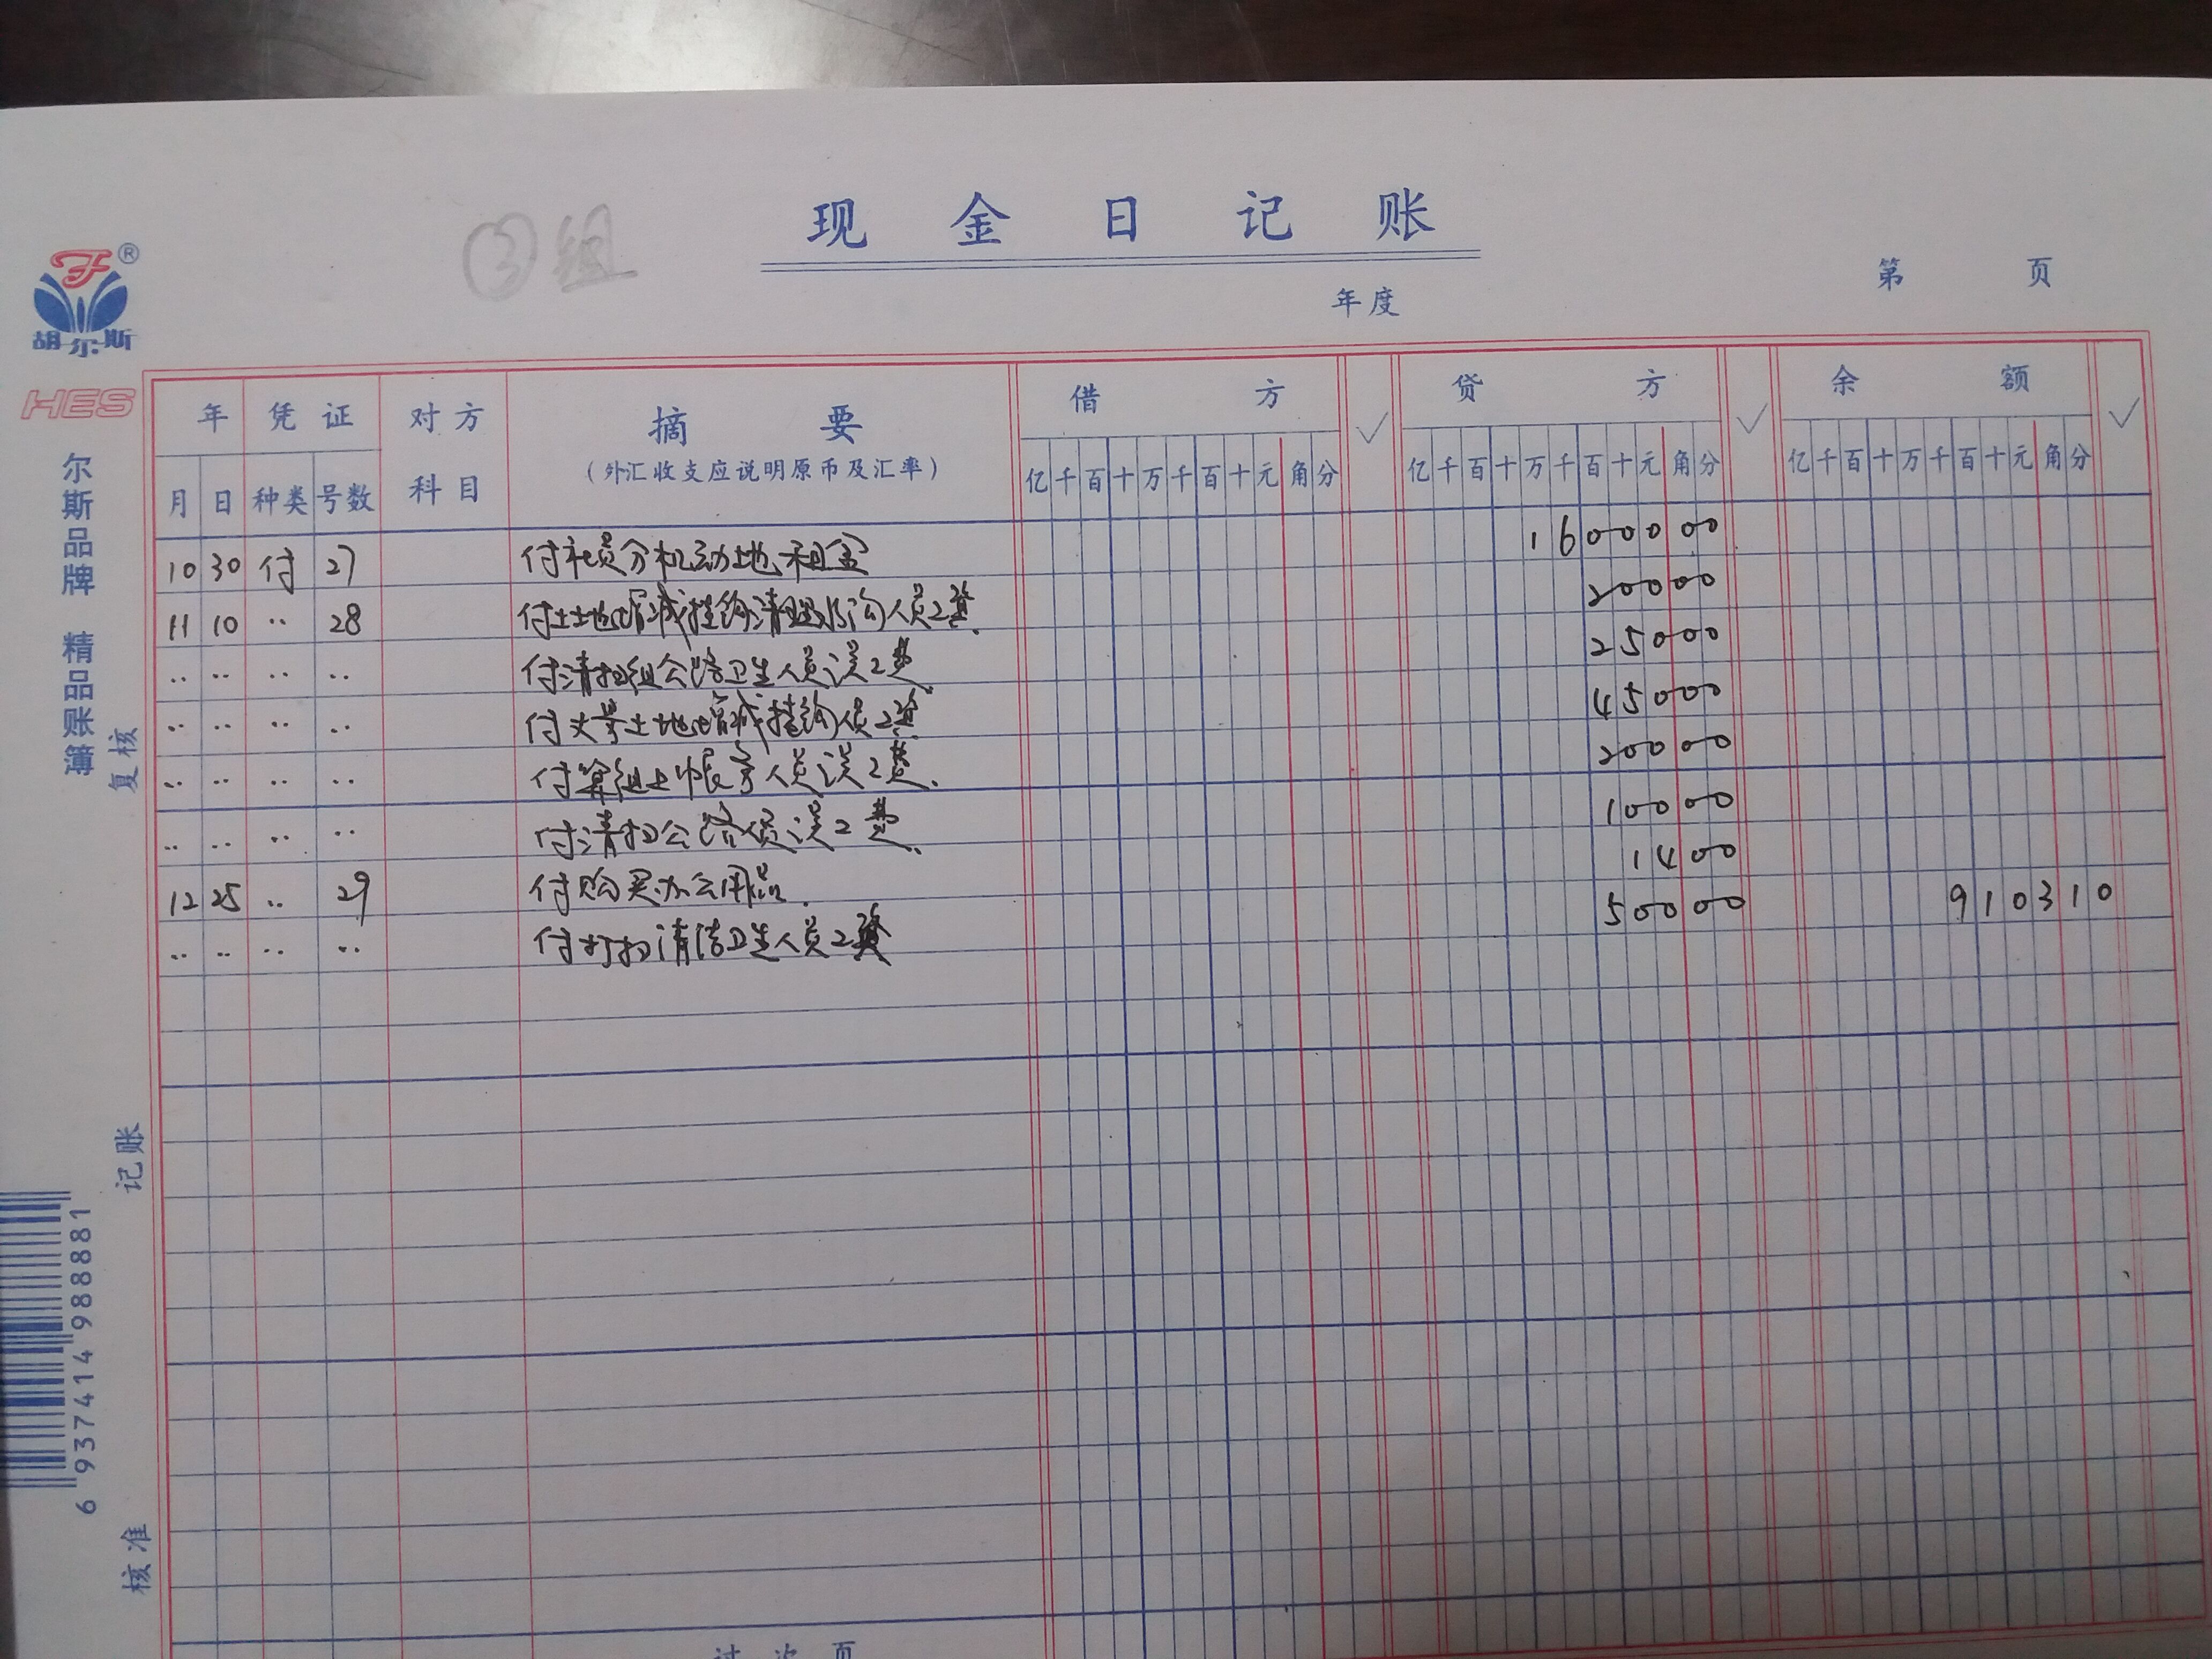 现金日记账
③组
年度
第 页
胡尔斯
HES
尔斯品牌 精品账簿
复核
记账
核准
6 937414 988881
年 凭证 对方科目 摘要 借方 ✓ 贷方 ✓ 余额 ✓
(外汇收支应说明原币及汇率)
月 日 种类 号数 亿千百十万千百十元角分 亿千百十万千百十元角分 亿千百十万千百十元角分
10 30 付 27 付社员分机动地租金 1600000
11 10 〃 28 付土地增减挂钩清理水沟人员工资. 20000
〃 〃 〃 〃 付清扫组公路卫生人员误工费. 25000
〃 〃 〃 〃 付丈量土地增减挂钩人员工资 45000
〃 〃 〃 〃 付算组上帐务人员误工费. 20000
〃 〃 〃 〃 付清扫公路人员误工费. 10000
12 25 〃 29 付购买办公用品. 1400
〃 〃 〃 〃 付打扫清洁卫生人员工资 50000 910310
过次页